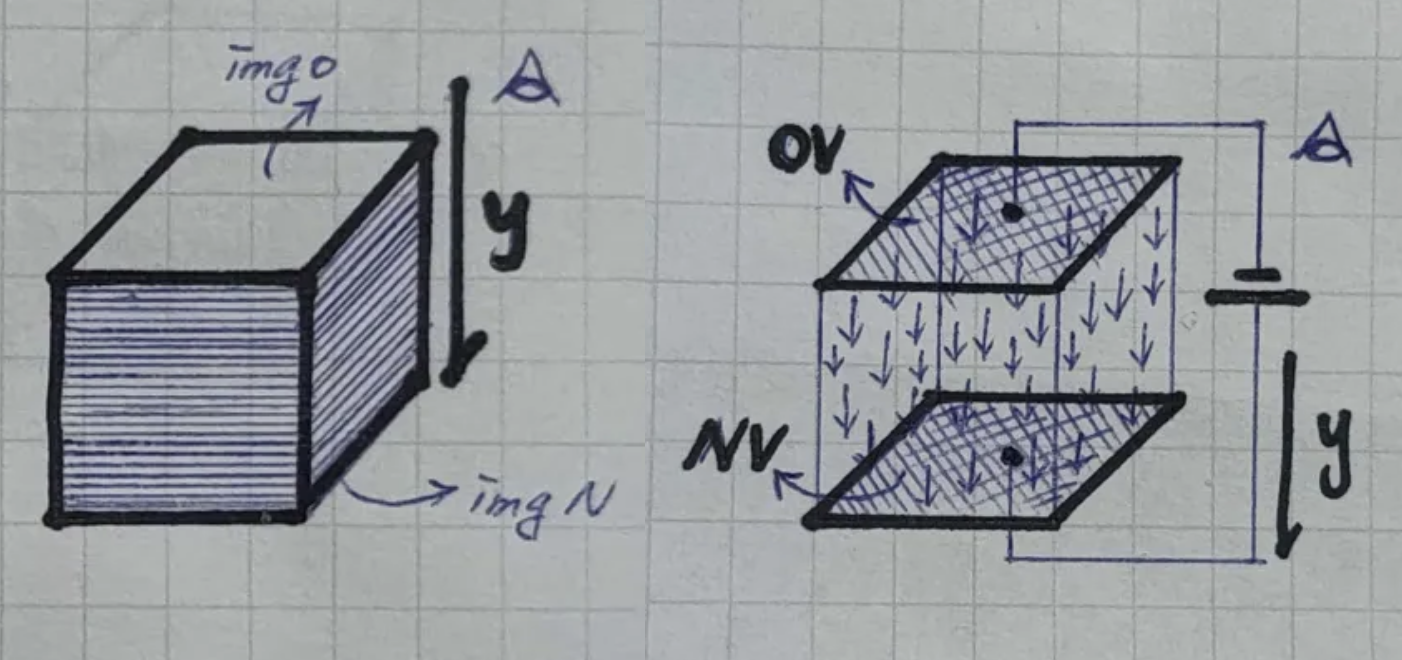 img 0
y
img N
0V
NV
y